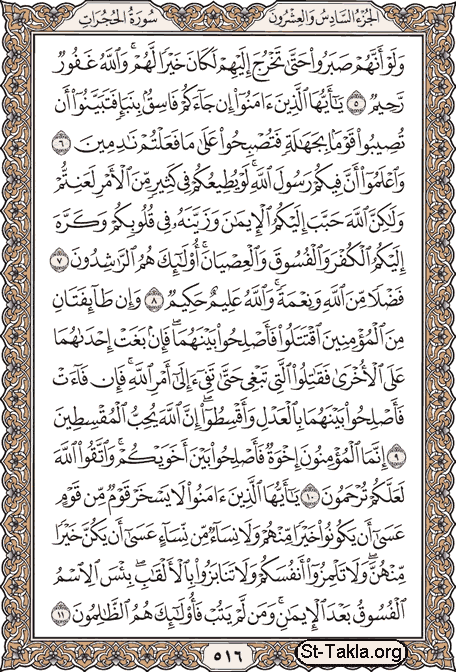 الجزء السادس والعشرون سورة الحجرات
وَلَوْ أَنَّهُمْ صَبَرُوا۟ حَتَّىٰ تَخْرُجَ إِلَيْهِمْ لَكَانَ خَيْرًا لَّهُمْ ۚ وَٱللَّهُ غَفُورٌ
رَّحِيمٌ ٥ يَـٰٓأَيُّهَا ٱلَّذِينَ ءَامَنُوٓا۟ إِن جَآءَكُمْ فَاسِقٌۢ بِنَبَإٍ فَتَبَيَّنُوٓا۟ أَن
تُصِيبُوا۟ قَوْمًۢا بِجَهَـٰلَةٍ فَتُصْبِحُوا۟ عَلَىٰ مَا فَعَلْتُمْ نَـٰدِمِينَ ٦
وَٱعْلَمُوٓا۟ أَنَّ فِيكُمْ رَسُولَ ٱللَّهِ ۚ لَوْ يُطِيعُكُمْ فِى كَثِيرٍ مِّنَ ٱلْأَمْرِ لَعَنِتُّمْ
وَلَـٰكِنَّ ٱللَّهَ حَبَّبَ إِلَيْكُمُ ٱلْإِيمَـٰنَ وَزَيَّنَهُۥ فِى قُلُوبِكُمْ وَكَرَّهَ
إِلَيْكُمُ ٱلْكُفْرَ وَٱلْفُسُوقَ وَٱلْعِصْيَانَ ۚ أُو۟لَـٰٓئِكَ هُمُ ٱلرَّٰشِدُونَ ٧
فَضْلًا مِّنَ ٱللَّهِ وَنِعْمَةً ۚ وَٱللَّهُ عَلِيمٌ حَكِيمٌ ٨ وَإِن طَآئِفَتَانِ
مِنَ ٱلْمُؤْمِنِينَ ٱقْتَتَلُوا۟ فَأَصْلِحُوا۟ بَيْنَهُمَا ۖ فَإِنۢ بَغَتْ إِحْدَىٰهُمَا
عَلَى ٱلْأُخْرَىٰ فَقَـٰتِلُوا۟ ٱلَّتِى تَبْغِى حَتَّىٰ تَفِىٓءَ إِلَىٰٓ أَمْرِ ٱللَّهِ ۚ فَإِن فَآءَتْ
فَأَصْلِحُوا۟ بَيْنَهُمَا بِٱلْعَدْلِ وَأَقْسِطُوٓا۟ ۖ إِنَّ ٱللَّهَ يُحِبُّ ٱلْمُقْسِطِينَ
٩ إِنَّمَا ٱلْمُؤْمِنُونَ إِخْوَةٌ فَأَصْلِحُوا۟ بَيْنَ أَخَوَيْكُمْ ۚ وَٱتَّقُوا۟ ٱللَّهَ
لَعَلَّكُمْ تُرْحَمُونَ ١٠ يَـٰٓأَيُّهَا ٱلَّذِينَ ءَامَنُوا۟ لَا يَسْخَرْ قَوْمٌ مِّن قَوْمٍ
عَسَىٰٓ أَن يَكُونُوا۟ خَيْرًا مِّنْهُمْ وَلَا نِسَآءٌ مِّن نِّسَآءٍ عَسَىٰٓ أَن يَكُنَّ خَيْرًا
مِّنْهُنَّ ۖ وَلَا تَلْمِزُوٓا۟ أَنفُسَكُمْ وَلَا تَنَابَزُوا۟ بِٱلْأَلْقَـٰبِ ۖ بِئْسَ ٱلِٱسْمُ
ٱلْفُسُوقُ بَعْدَ ٱلْإِيمَـٰنِ ۚ وَمَن لَّمْ يَتُبْ فَأُو۟لَـٰٓئِكَ هُمُ ٱلظَّـٰلِمُونَ ١١
٥١٦
St-Takla.org